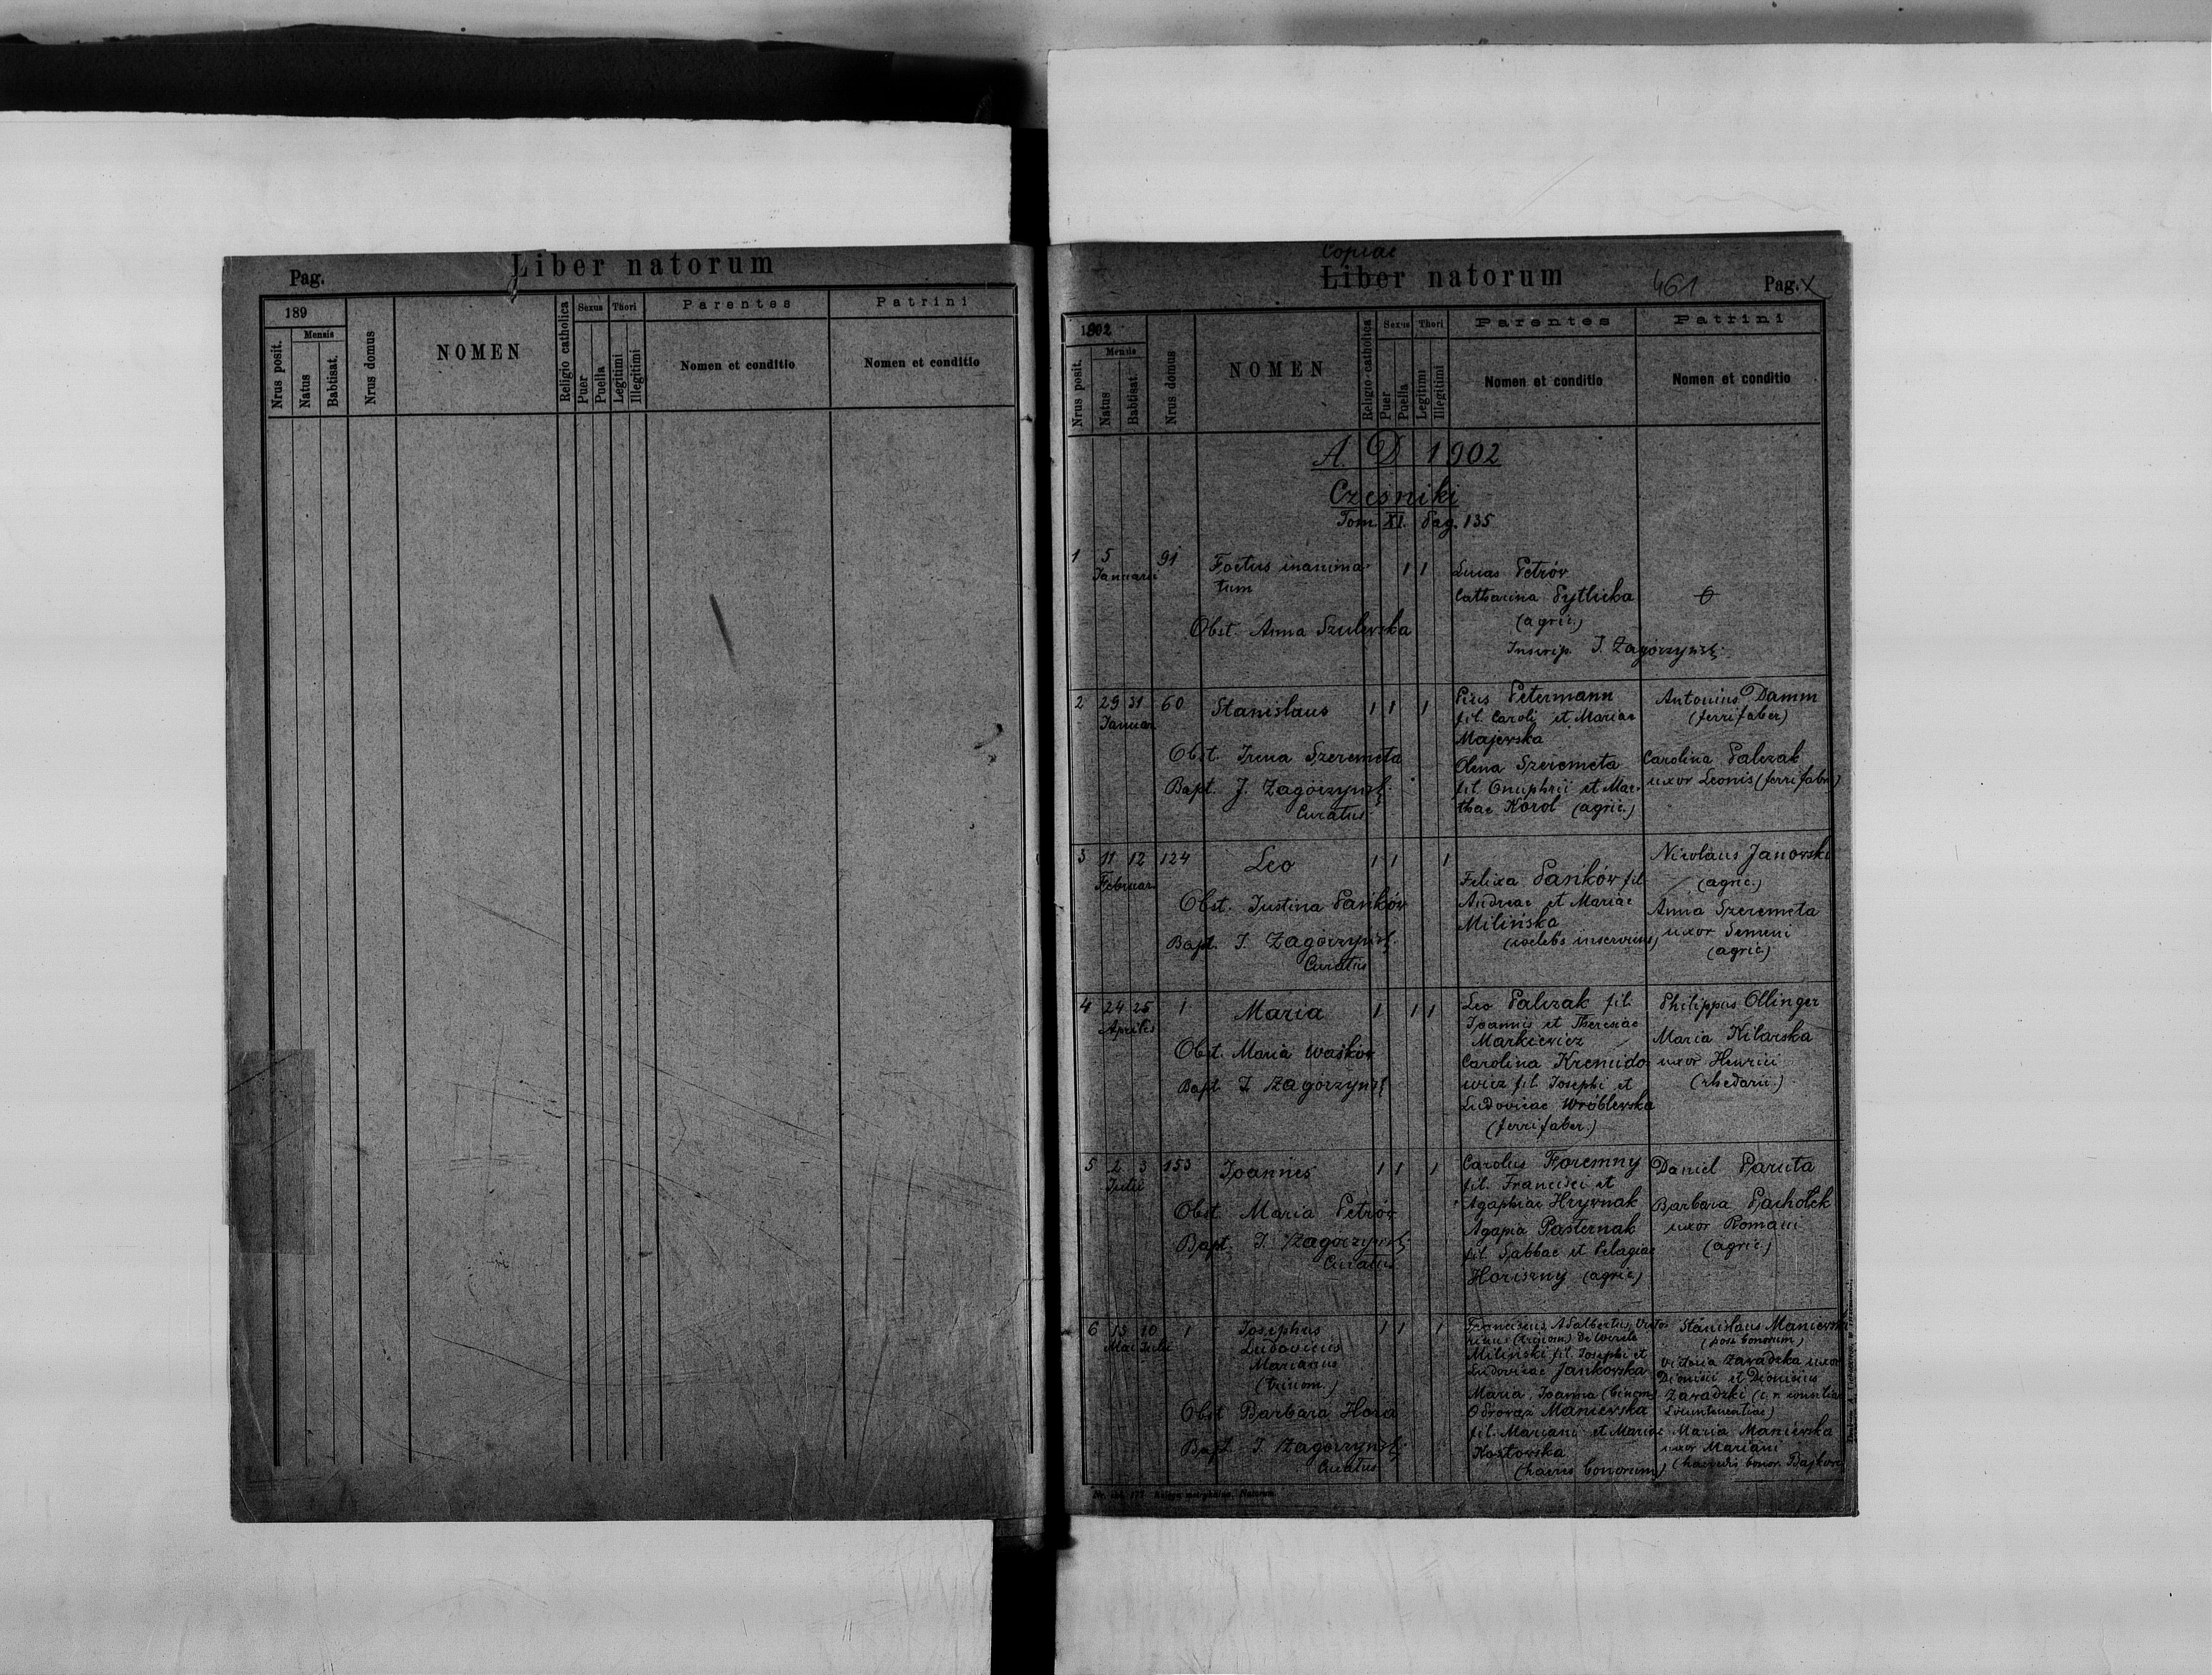 Pag.
Liber natorum
189
Nrus posit.
Mensis
Natus
Babtisat.
Nrus domus
NOMEN
Religio catholica
Sexus
Puer
Puella
Thori
Legitimi
Illegitimi
Parentes
Nomen et conditio
Patrini
Nomen et conditio
Copiae
Liber natorum
461
Pag.
1902
Nrus posit.
Mensis
Natus
Babtisat.
Nrus domus
NOMEN
Religio catholica
Sexus
Puer
Puella
Thori
Legitimi
Illegitimi
Parentes
Nomen et conditio
Patrini
Nomen et conditio
A. D 1902
Cześniki
Tom XI. Pag. 135
1 5 91 Foetus inanima- 1 1
Januarii tum
Obst. Anna Szulewska
Lucas Petrów
Catharina Pytlicka
(agric.)
Inscrip. J. Zagórzyński
2 29 31 60 Stanislaus 1 1 1
Januar
Obst. Irena Szeremeta
Bapt. J. Zagórzyński
Curatus
Pius Petermann
fil. Caroli et Mariae
Majewska
Olena Szeremeta
fil. Onuphrii et Mar-
thae Korol (agric.)
Antonius Damm
(ferrifaber)
Carolina Palczak
uxor Leonis (ferrifabri)
3 11 12 124 Leo 1 1 1
Februar.
Obst. Justina Pańków
Bapt. J. Zagórzyński
Curatus
Felixa Pańków fil.
Andreae et Mariae
Milińska
Nicolaus Janowski
(agric.)
Anna Szeremeta
uxor Semeni
(agric.)
4 24 25 1 Maria 1 1 1
Aprilis
Obst. Maria Waśków
Bapt. J. Zagórzyński
Leo Palczak fil.
Joannis et Theresiae
Markiewicz
Carolina Kremido-
wicz fil. Josephi et
Ludovicae Wróblewska
(ferrifaber.)
Philippus Ollinger
Maria Kilarska
uxor Henrici
(rhedarii.)
5 2 3 153 Joannes 1 1 1
Julii
Obst. Maria Petrów
Bapt. J. Zagórzyński
Curatus
Carolus Foremny
fil. Francisci et
Agaphiae Hrywnak
Agapia Pasternak
fil. Sabbae et Pelagiae
Horiszny (agric.)
Daniel Paruta
Barbara Pachołek
uxor Romani
(agric.)
6 13 10 1 Josephus 1 1 1
Mai Julii Ludovicus
Marianus
(trinom.)
Obst Barbara Hora
Bapt. J. Zagórzyński
Curatus
Franciscus, Adalbertus,
Miliński fil. Josephi et
Ludovicae Jankowska
Maria, Joanna (binom)
Odrowąż Maniewska
fil. Mariani et Mariae
Kozłowska
(haeres bonorum)
Stanislaus Maniewski
(poss bonorum)
Victoria Zawadzka uxor
Dionisii et Dionisius
Zawadzki
Maria Maniewska
uxor Mariani